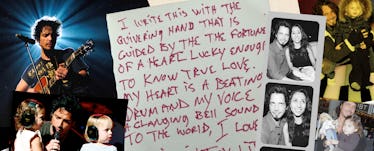 I WRITE THIS WITH THE
QUIVERING HAND THAT IS
GUIDED BY THE THE FORTUNE
OF A HEART LUCKY ENOUGH
TO KNOW TRUE LOVE.
MY HEART IS A BEATING
DRUM AND MY VOICE
A CLANGING BELL SOUND
TO THE WORLD, I LOVE